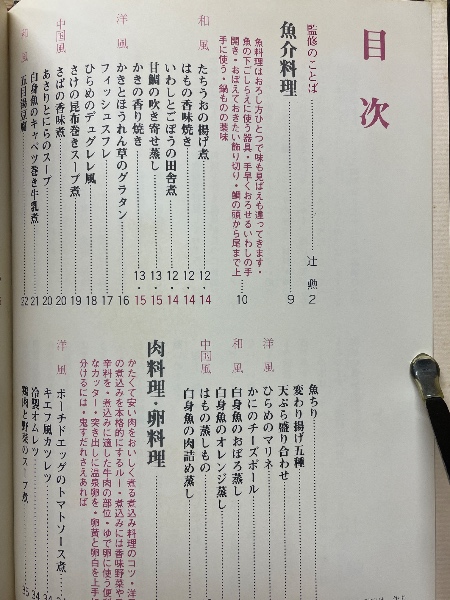 目次
監修のことば 辻 勲 2
魚介料理 9
魚料理はおろし方ひとつで味も見ばえも違ってきます・
魚の下ごしらえに使う器具・手早くおろせるいわしの手
開き・おぼえておきたい飾り切り・鯛の頭から尾まで上
手に使う・鍋ものの薬味 10
和風
たちうおの揚げ煮 12・14
はもの香味焼き 12・14
いわしとごぼうの田舎煮 12・14
甘鯛の吹き寄せ蒸し 13・15
かきの香り焼き 13・15
洋風
かきとほうれん草のグラタン 16
フィッシュスフレ 17
ひらめのデュグレレ風 18
さけの昆布巻きスープ煮 19
中国風
さばの香味煮 20
あさりとにらのスープ 20
白身魚のキャベツ巻き牛乳煮 21
和風
五目湯豆腐 22
魚ちり
変わり揚げ五種
天ぷら盛り合わせ
洋風
ひらめのマリネ
かにのチーズボール
和風
白身魚のおぼろ蒸し
白身魚のオレンジ蒸し
中国風
はもの蒸しもの
白身魚の肉詰め蒸し
肉料理・卵料理
かたくて安い肉をおいしく煮る煮込み料理のコツ・洋風
の煮込みを本格的にするルー・煮込みには香味野菜や
辛料を・煮込みに適した牛肉の部位・ゆで卵に使う便利
なカッター・突き出しに温泉卵を・卵黄と卵白を上手に
分けるには・鬼すだれさえあれば
洋風
ポーチドエッグのトマトソース煮
キエフ風カツレツ
冷製オムレツ
鶏肉と野菜のスープ煮